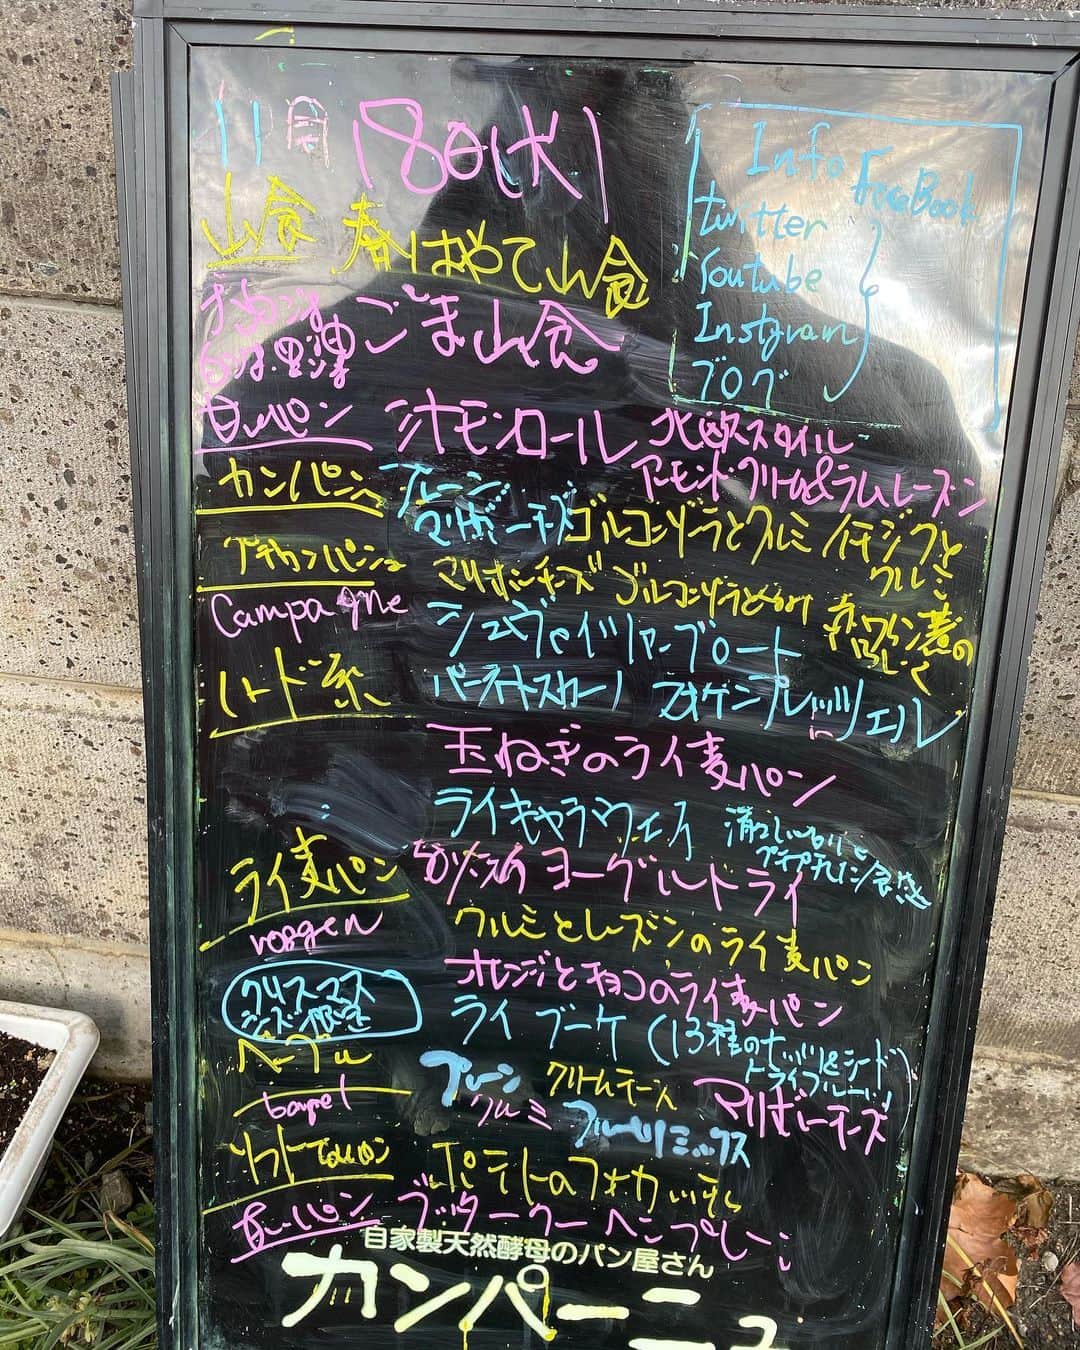 11月18日(水)
Info
FaceBook
twitter
Youtube
Instgram
ブログ
山食 春はやて山食
ごま山食
白ごま・黒ごま
甘いパン シナモンロール 北欧スタイル
アーモンドクリーム&ラムレーズン
カンパーニュ プレーン
マリボーチーズ ゴルゴンゾーラとクルミ イチジクと
クルミ
プチカンパーニュ マリボーチーズ ゴルゴンゾーラとくるみ 赤ワイン煮の
いちじく
Campagne
シュヴァイツァーブロート
ハード系
玉ねぎのライ麦パン
ライキャラウェイ
ライ麦パン ヨーグルトライ
roggen
クルミとレーズンのライ麦パン
オレンジとチョコのライ麦パン
クリスマス
シーズン限定
ライブーケ (13種のナッツ&シード
ドライフルーツ)
ベーグル
bagel
プレーン クリームチーズ マリボーチーズ
クルミ フルーツミックス
ソフト
ポテトのフォカッチャ
甘いパン ブッタークーヘン プレーン
自家製天然酵母のパン屋さん
カンパーニュ